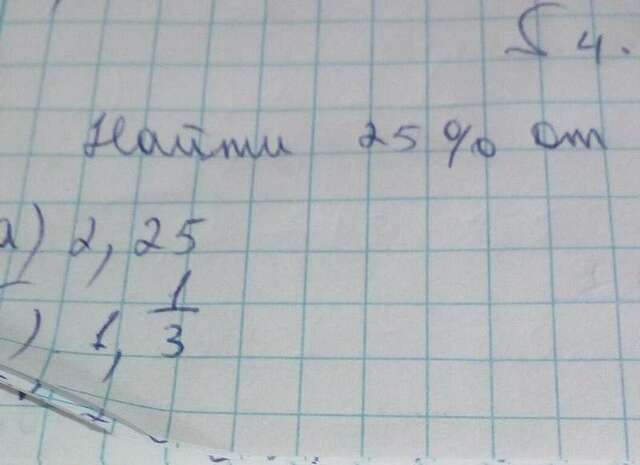 § 4.
Найти 25% от
а) 2,25
б) 1, 1/3